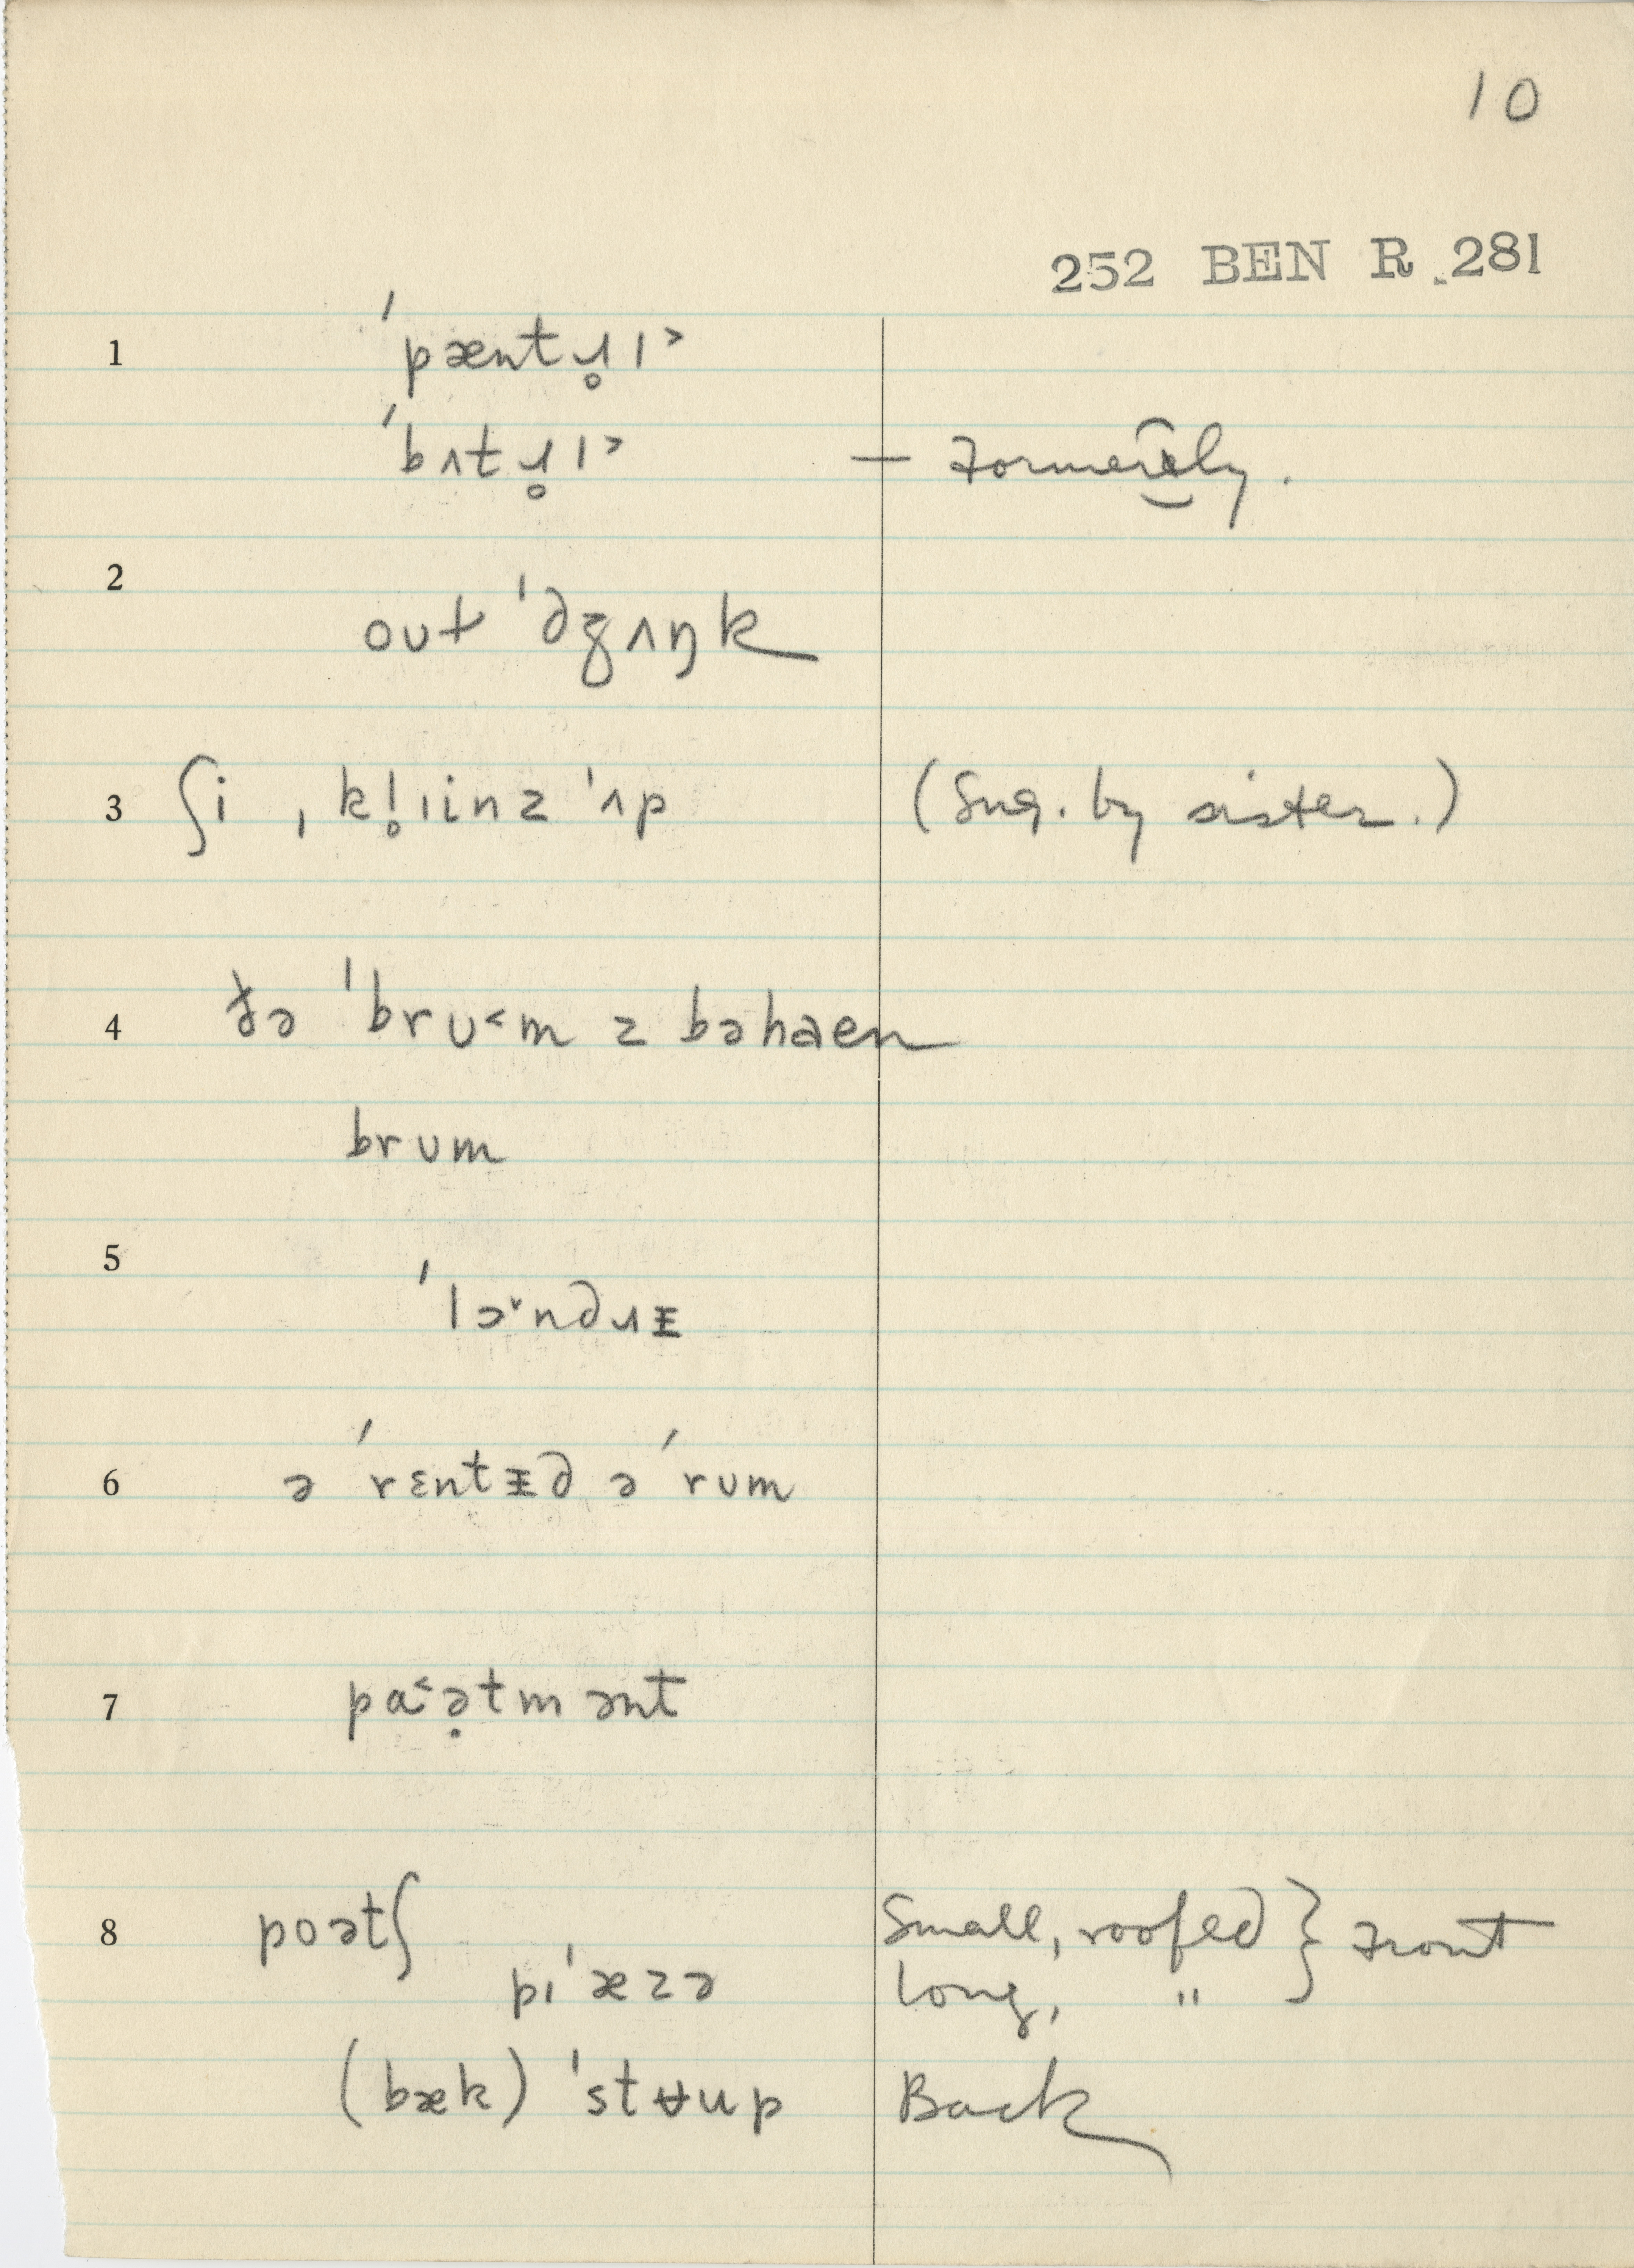 10
252 BEN R. 281
1 ˈpæntɹ̥ɪ˃
ˈbʌtɹ̥ɪ˃ — Formerly.
2 out ˈdʒʌŋk
3 ʃi ˌkl̥ɪinz ˈʌp (Sug. by sister.)
4 ðə ˈbrʊ˂m z bəhaen
brʊm
5 ˈlɔ˅ndɹᵻ
6 ə ˈrɛntᵻd ə ˈrʊm
7 pa˂ə̣tmənt
8 poətʃ Small, roofed } Front
pɪˈæzə Long, "
(bæk) ˈstʉup Back